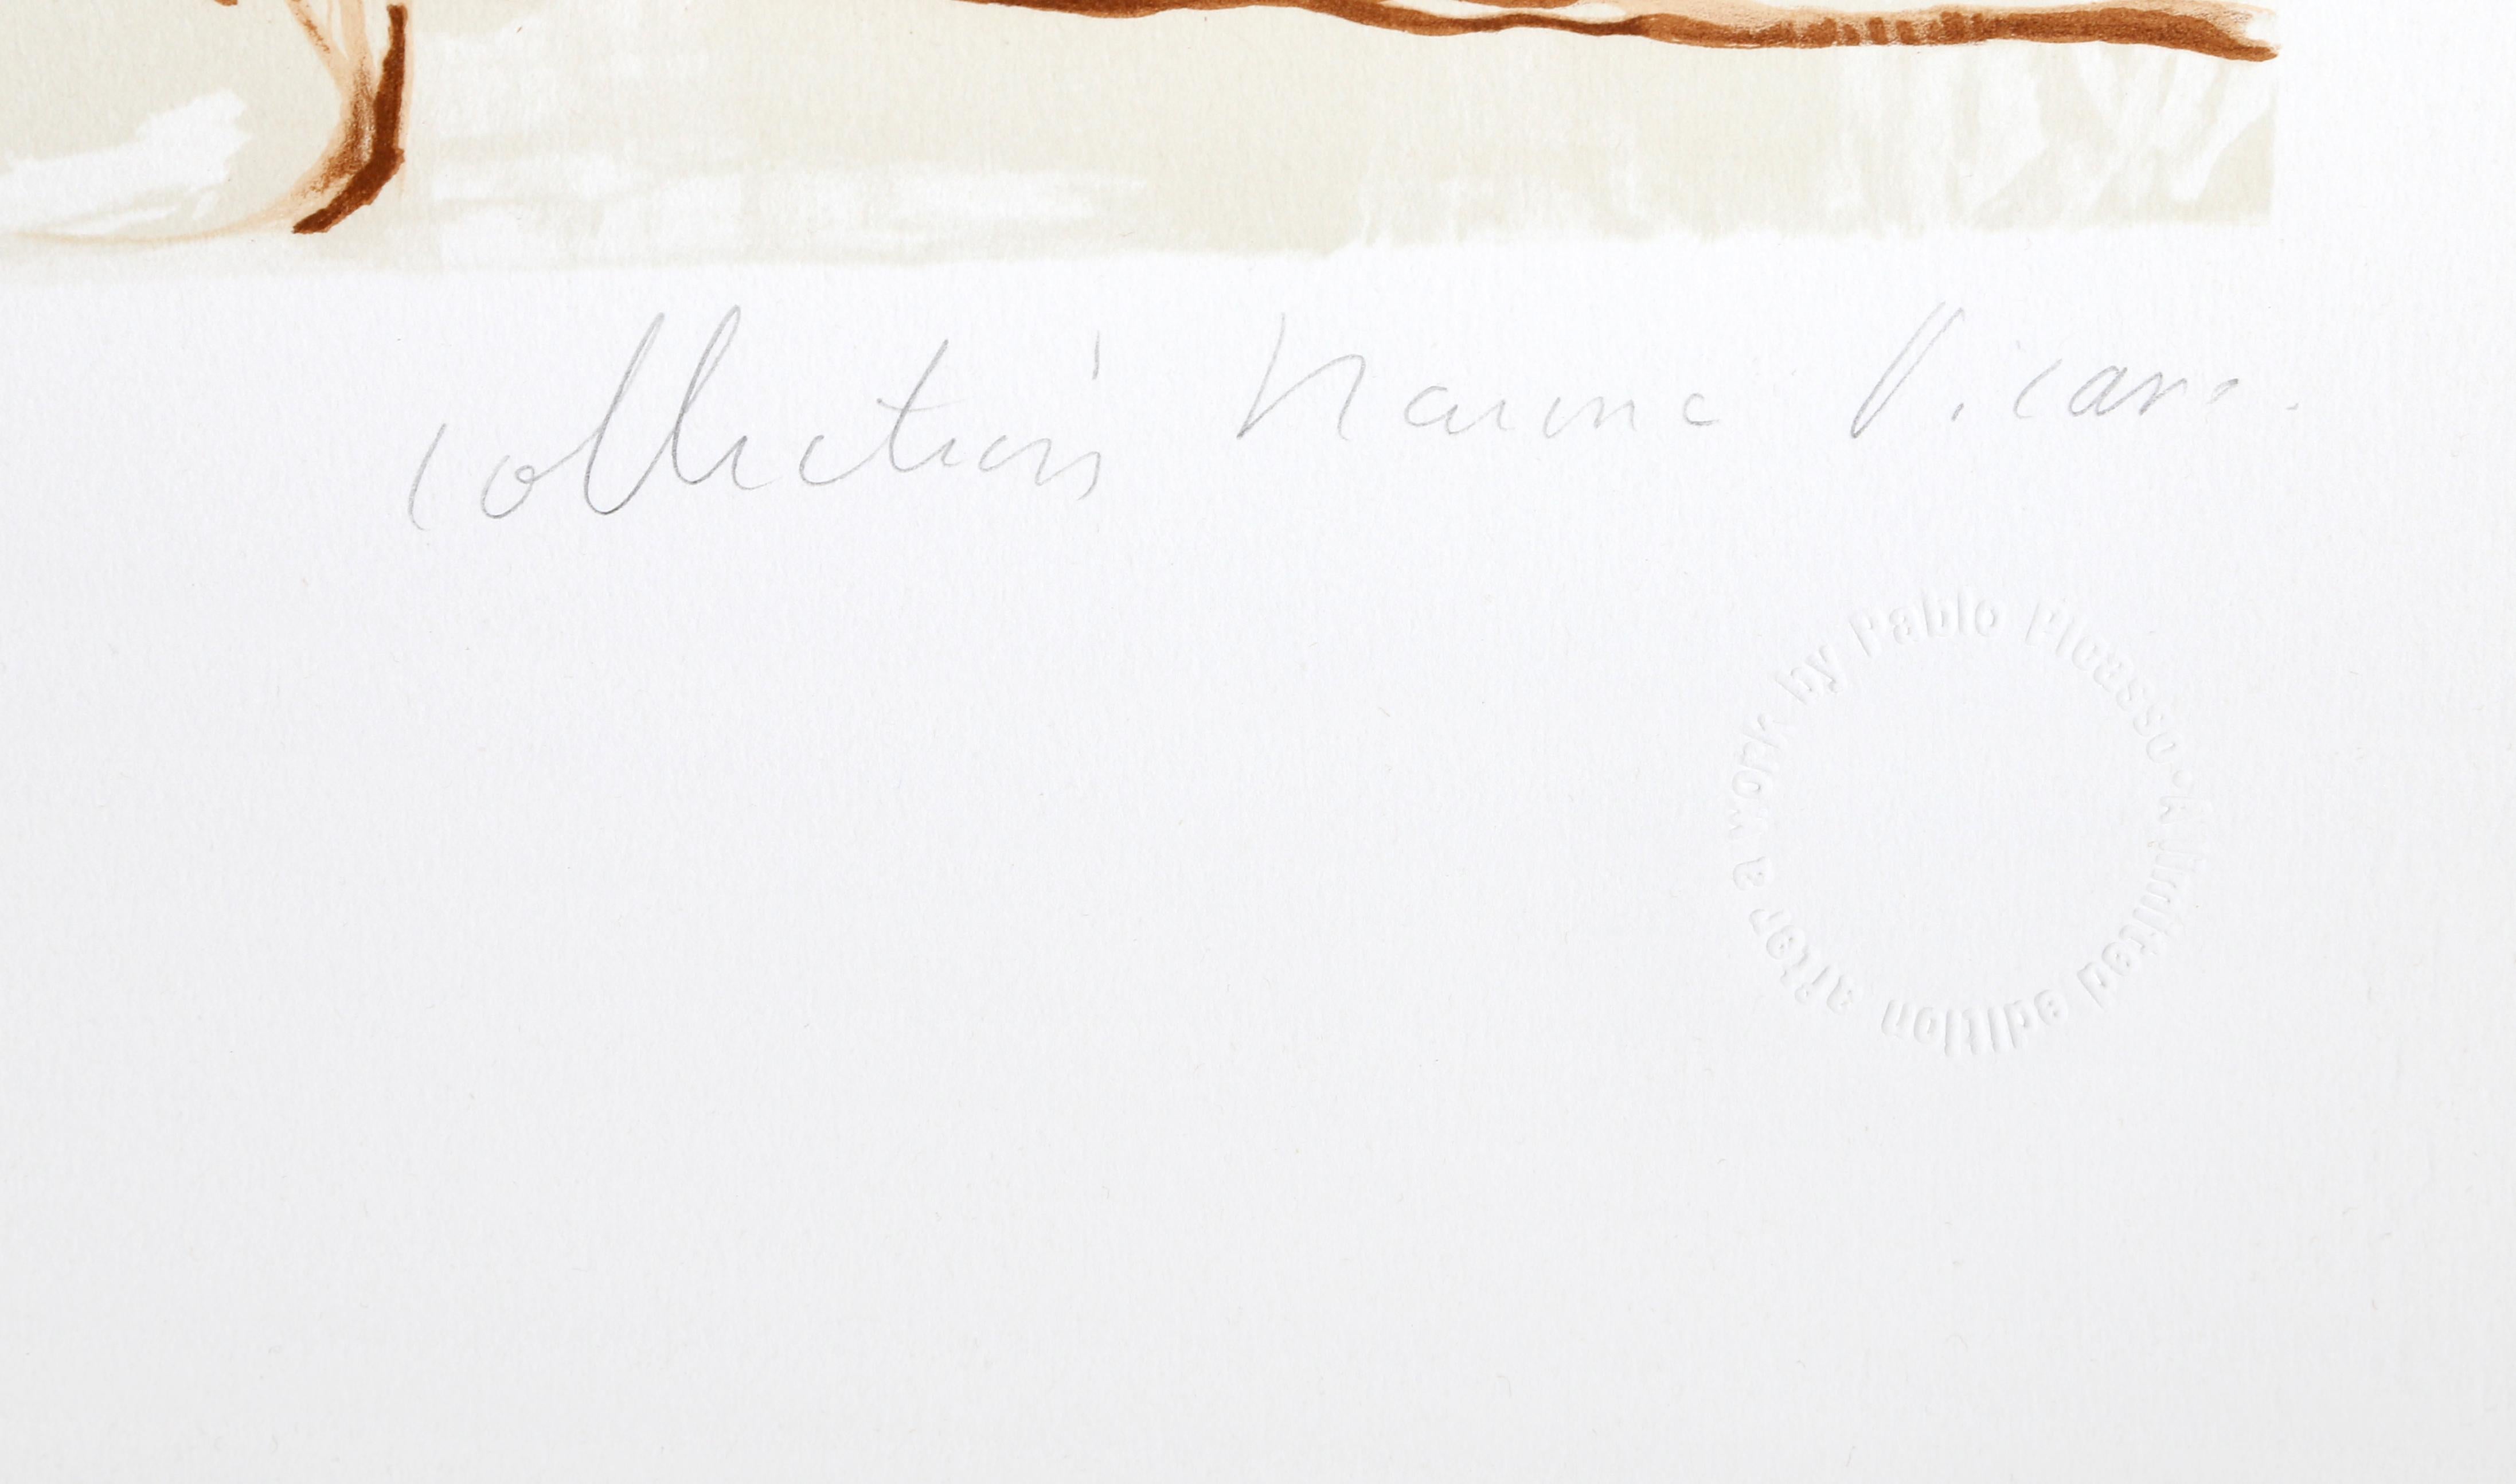 Collection Marina Picasso.
limited edition after a work by Pablo Picasso •